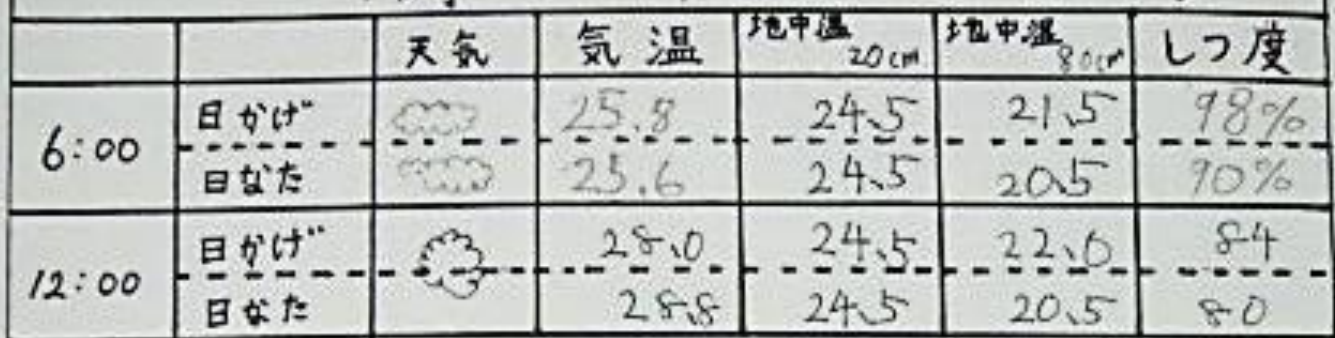 天気 気温 地中温20cm 地中温80cm しつ度
6:00
日かげ 25.8 24.5 21.5 98%
日なた 25.6 24.5 20.5 90%
12:00
日かげ 28.0 24.5 22.0 84
日なた 28.8 24.5 20.5 80